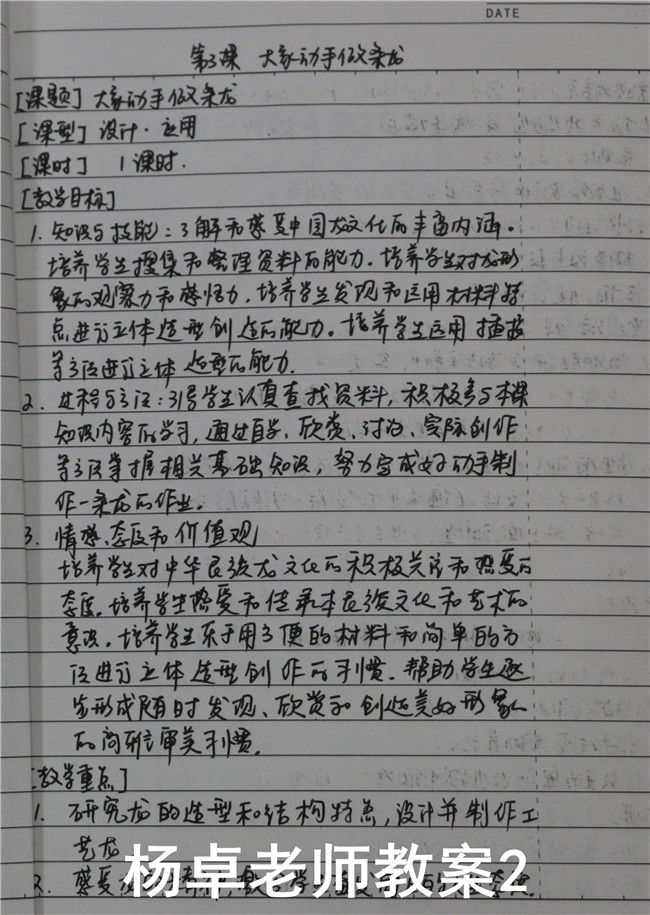 DATE
第3课 大家动手做条龙
[课题] 大家动手做条龙
[课型] 设计·应用
[课时] 1课时.
[教学目标]
1. 知识与技能:了解和感受中国龙文化的丰富内涵。
培养学生搜集和整理资料的能力.培养学生对龙形
象的观察力和感悟力.培养学生发现和运用材料特
点进行立体造型创造的能力。培养学生运用插接
等方法进行立体造型的能力.
2. 过程与方法:引导学生认真查找资料,积极参与本课
知识内容的学习,通过自学、欣赏、讨论、实际创作
等方法掌握相关基础知识,努力完成好动手制
作一条龙的作业。
3. 情感、态度和价值观
培养学生对中华民族龙文化的积极关注和热爱的
态度.培养学生热爱和传承本民族文化和艺术的
意识.培养学生乐于用方便的材料和简单的方
法进行立体造型创作的习惯.帮助学生逐
步形成随时发现、欣赏和创造美好形象
的高雅审美习惯.
[教学重点]
1. 研究龙的造型和结构特点,设计并制作工
艺龙
2. 感受
杨卓老师教案2